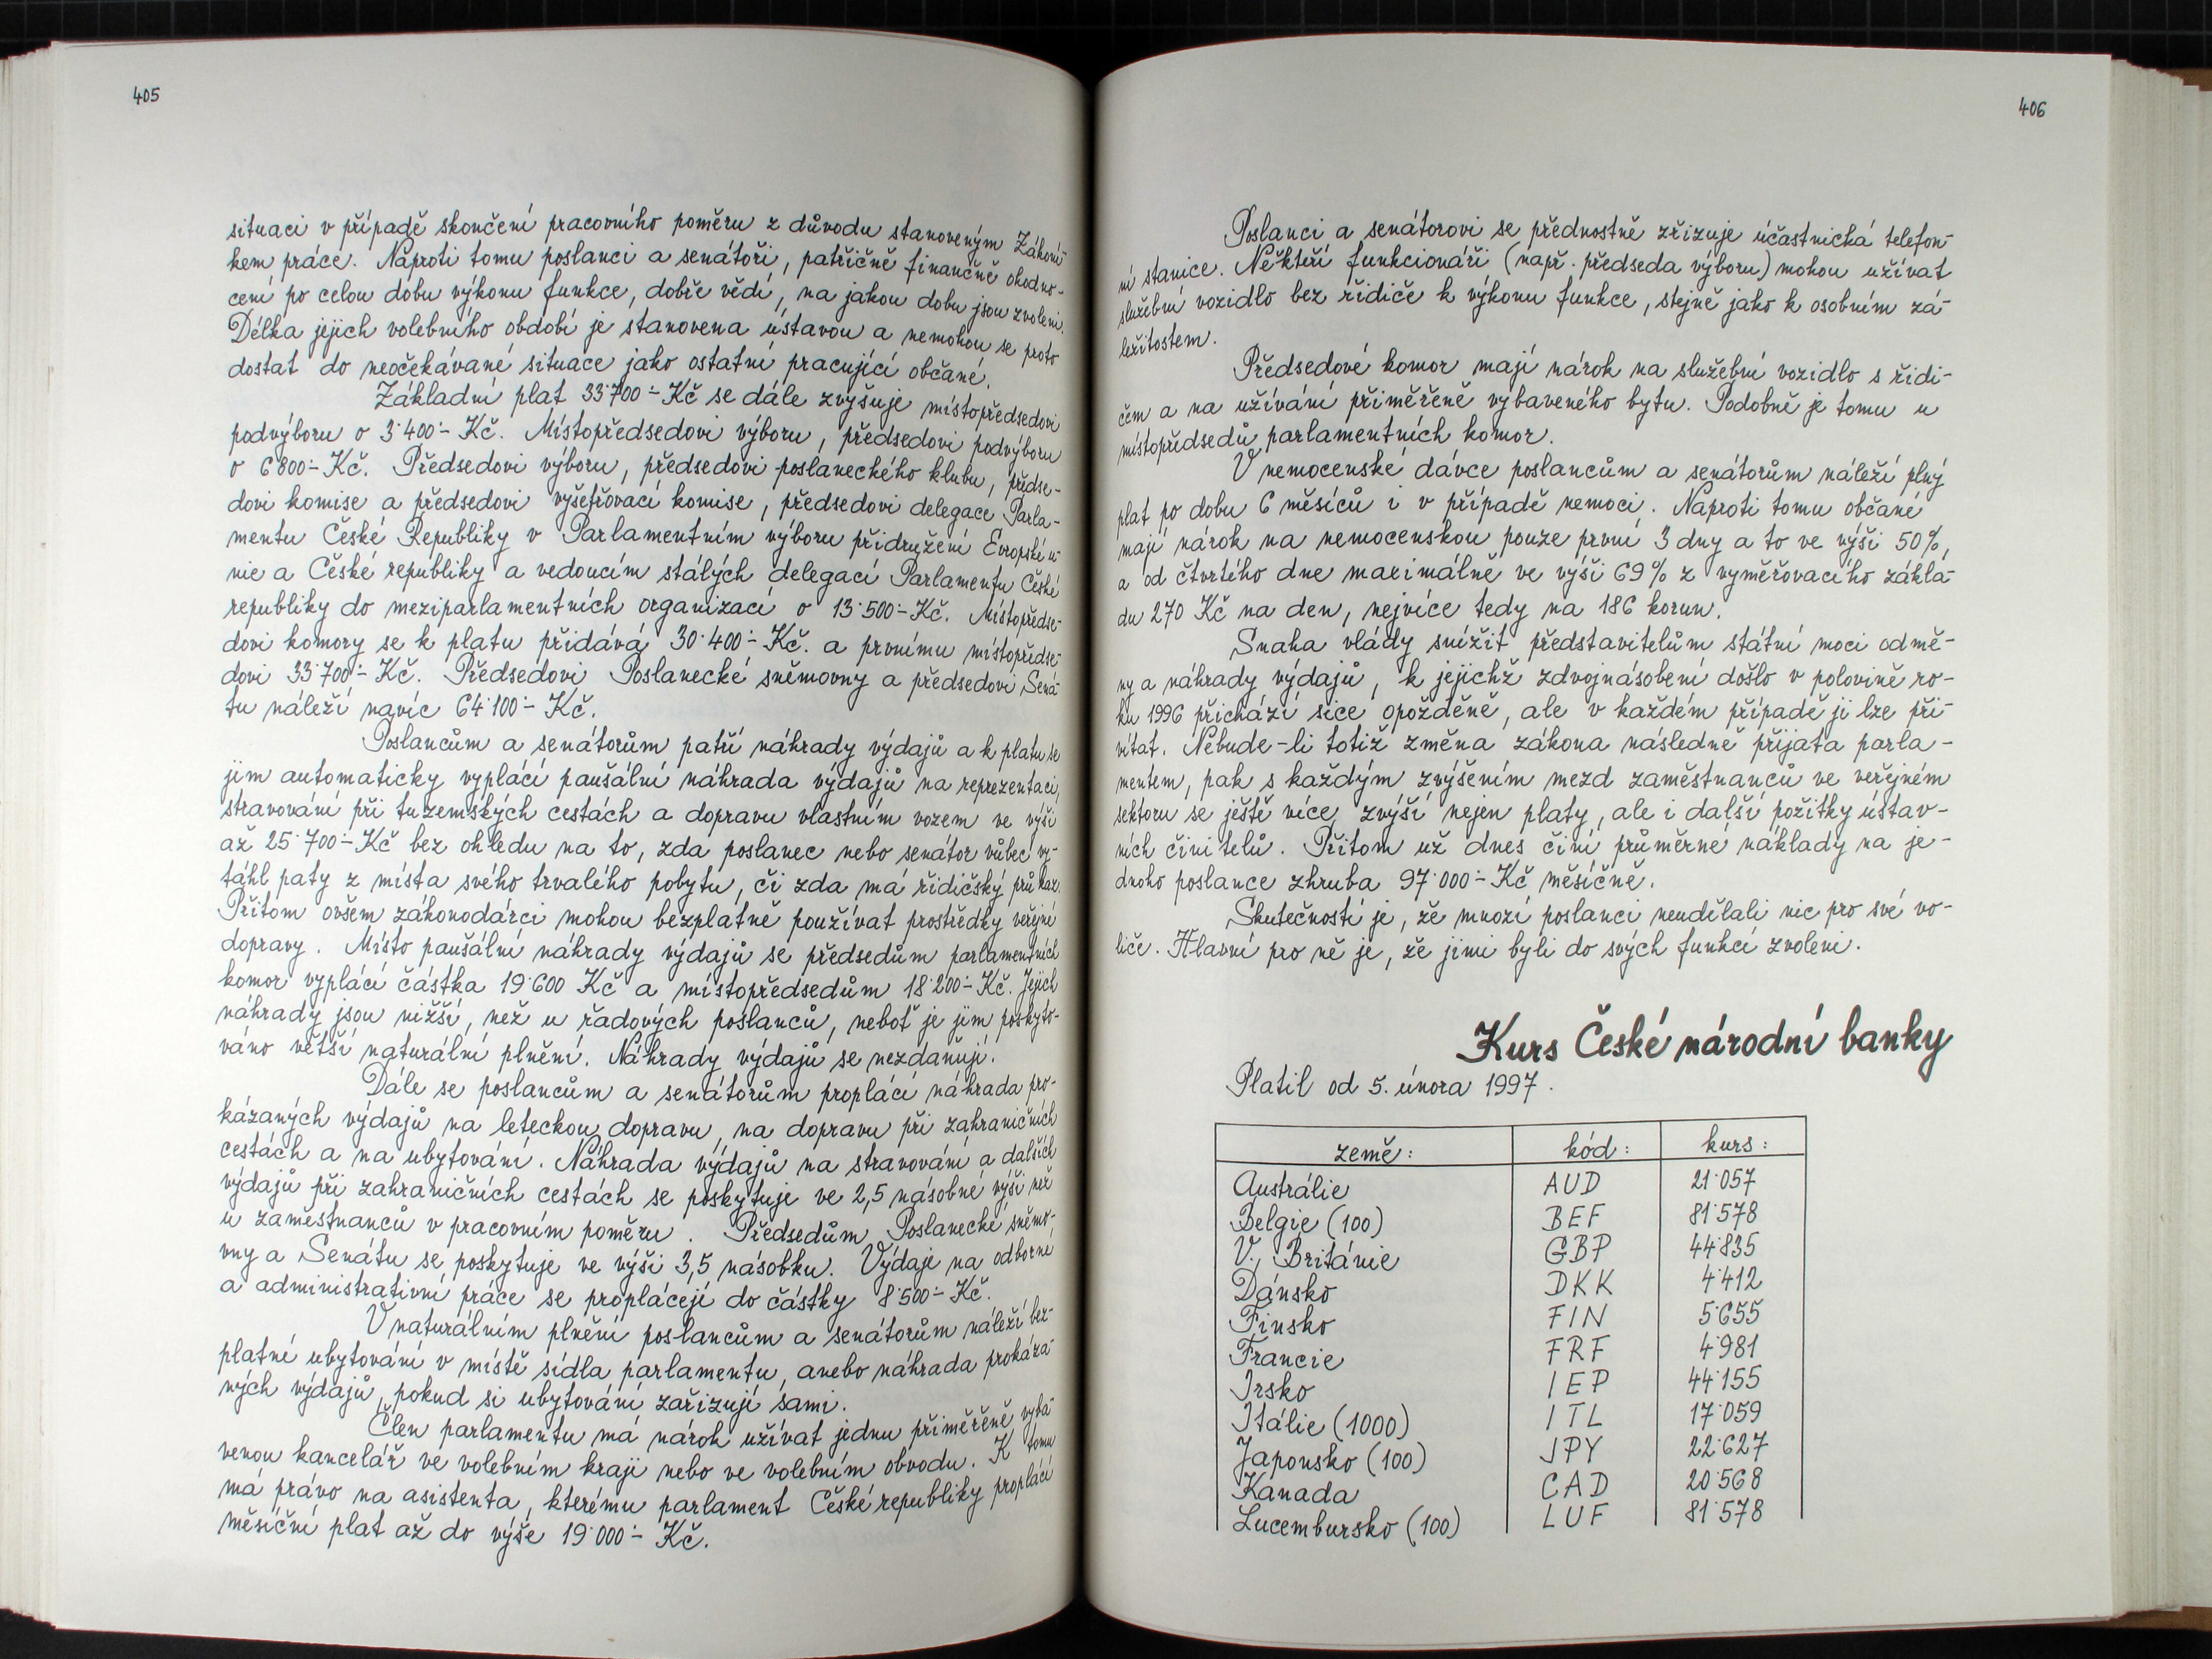 405
situaci v případě skončení pracovního poměru z důvodu stanoveným Zákoní-
kem práce. Naproti tomu poslanci a senátoři, patřičně finančně ohodno-
cení po celou dobu výkonu funkce, dobře vědí, na jakou dobu jsou zvoleni.
Délka jejich volebního období je stanovena ústavou a nemohou se proto
dostat do neočekávané situace jako ostatní pracující občané.
Základní plat 33˙700.- Kč se dále zvyšuje místopředsedovi
podvýboru o 3˙400.- Kč. Místopředsedovi výboru, předsedovi podvýboru
o 6˙800.- Kč. Předsedovi výboru, předsedovi poslaneckého klubu, předse-
dovi komise a předsedovi vyšetřovací komise, předsedovi delegace Parla-
mentu České Republiky v Parlamentním výboru přidružení Evropské u-
nie a České republiky a vedoucím stálých delegací Parlamentu České
republiky do meziparlamentních organizací o 13˙500.- Kč. Místopředse-
dovi komory se k platu přidává 30˙400.- Kč. a prvnímu místopředse-
dovi 33˙700.- Kč. Předsedovi Poslanecké sněmovny a předsedovi Sená-
tu náleží navíc 64˙100.- Kč.
Poslancům a senátorům patří náhrady výdajů a k platu se
jim automaticky vyplácí paušální náhrada výdajů na reprezentaci,
stravování při tuzemských cestách a dopravu vlastním vozem ve výši
až 25˙700.- Kč bez ohledu na to, zda poslanec nebo senátor vůbec vy-
táhl paty z místa svého trvalého pobytu, či zda má řidičský průkaz.
Přitom ovšem zákonodárci mohou bezplatně používat prostředky veřejné
dopravy. Místo paušální náhrady výdajů se předsedům parlamentních
komor vyplácí částka 19˙600 Kč a místopředsedům 18˙200.- Kč. Jejich
náhrady jsou nižší, než u řadových poslanců, neboť je jim poskyto-
váno větší naturální plnění. Náhrady výdajů se nezdaňují.
Dále se poslancům a senátorům proplácí náhrada pro-
kázaných výdajů na leteckou dopravu, na dopravu při zahraničních
cestách a na ubytování. Náhrada výdajů na stravování a dalších
výdajů při zahraničních cestách se poskytuje ve 2,5 násobné výši než
u zaměstnanců v pracovním poměru. Předsedům Poslanecké sněmo-
vny a Senátu se poskytuje ve výši 3,5 násobku. Výdaje na odborné
a administrativní práce se proplácejí do částky 8˙500.- Kč.
V naturálním plnění poslancům a senátorům náleží bez-
platné ubytování v místě sídla parlamentu, anebo náhrada prokáza-
ných výdajů, pokud si ubytování zařizují sami.
Člen parlamentu má nárok užívat jednu přiměřeně vyba-
venou kancelář ve volebním kraji nebo ve volebním obvodu. K tomu
má právo na asistenta, kterému parlament České republiky proplácí
měsíční plat až do výše 19˙000.- Kč.
406
Poslanci a senátorovi se přednostně zřizuje účastnická telefon-
ní stanice. Někteří funkcionáři (např. předseda výboru) mohou užívat
služební vozidlo bez řidiče k výkonu funkce, stejně jako k osobním zá-
ležitostem.
Předsedové komor mají nárok na služební vozidlo s řidi-
čem a na užívání přiměřeně vybaveného bytu. Podobně je tomu u
místopředsedů parlamentních komor.
V nemocenské dávce poslancům a senátorům náleží plný
plat po dobu 6 měsíců i v případě nemoci. Naproti tomu občané
mají nárok na nemocenskou pouze první 3 dny a to ve výši 50%,
a od čtvrtého dne maximálně ve výši 69% z vyměřovacího zákla-
du 270 Kč na den, nejvíce tedy na 186 korun.
Snaha vlády snížit představitelům státní moci odmě-
ny a náhrady výdajů, k jejichž zdvojnásobení došlo v polovině ro-
ku 1996 přichází sice opožděně, ale v každém případě ji lze při-
vítat. Nebude-li totiž změna zákona následně přijata parla-
mentem, pak s každým zvýšením mezd zaměstnanců ve veřejném
sektoru se ještě více zvýší nejen platy, ale i další požitky ústav-
ních činitelů. Přitom už dnes činí průměrné náklady na je-
dnoho poslance zhruba 97˙000.- Kč měsíčně.
Skutečností je, že mnozí poslanci neudělali nic pro své vo-
liče. Hlavní pro ně je, že jimi byli do svých funkcí zvoleni.
Kurs České národní banky
Platil od 5. února 1997.
země: kód: kurs:
Austrálie AUD 21˙057
Belgie (100) BEF 81˙578
V. Británie GBP 44˙835
Dánsko DKK 4˙412
Finsko FIN 5˙655
Francie FRF 4˙981
Irsko IEP 44˙155
Itálie (1000) ITL 17˙059
Japonsko (100) JPY 22˙627
Kanada CAD 20˙568
Lucembursko (100) LUF 81˙578